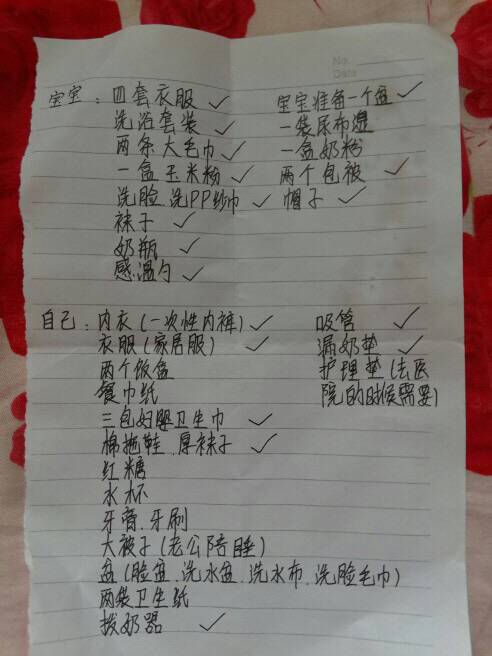 No.
Date
宝宝：四套衣服 ✓ 宝宝准备一个盆 ✓
洗浴套装 ✓ 一袋尿布湿
两条大毛巾 ✓ 一盒奶粉
一盒玉米粉 ✓ 两个包被 ✓
洗脸 洗PP纱巾 ✓ 帽子 ✓
袜子 ✓
奶瓶 ✓
感温勺 ✓
自己：内衣(一次性内裤) ✓ 吸管 ✓
衣服(家居服) ✓ 漏奶垫 ✓
两个饭盒 护理垫(去医
餐巾纸 院的时候需要)
三包妇婴卫生巾 ✓
棉拖鞋.厚袜子 ✓
红糖
水杯
牙膏.牙刷
大被子(老公陪睡)
盆(脸盆.洗水盆.洗水布.洗脸毛巾)
两袋卫生纸
拨奶器 ✓